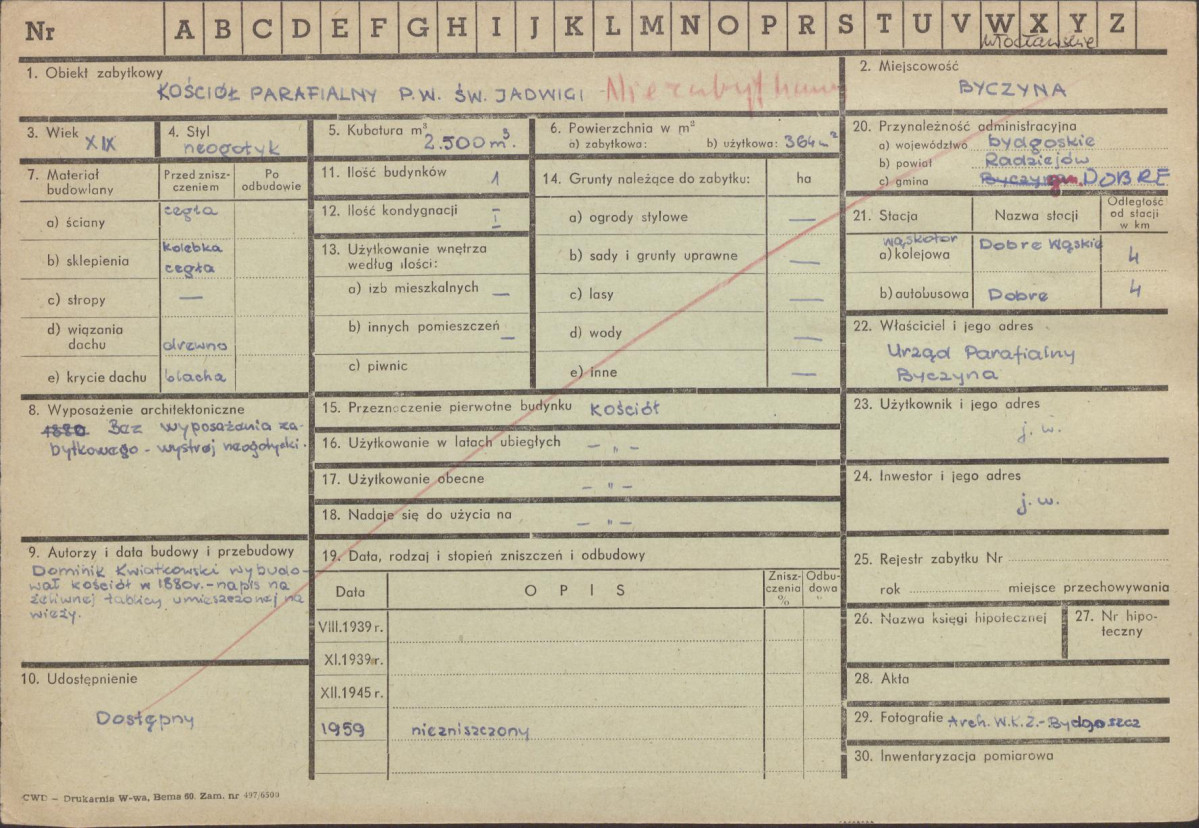 Nr A B C D E F G H I J K L M N O P R S T U V W X Y Z
Włocławskie
1. Obiekt zabytkowy
KOŚCIÓŁ PARAFIALNY P.W. ŚW. JADWIGI
2. Miejscowość
BYCZYNA
3. Wiek
XIX
4. Styl
neogotyk
5. Kubatura m³
2.500 m³.
6. Powierzchnia w m²
a) zabytkowa: b) użytkowa: 364 m²
20. Przynależność administracyjna
a) województwo bydgoskie
b) powiat Radziejów
c) gmina Byczyna gm. DOBRE
7. Materiał budowlany
Przed zniszczeniem
Po odbudowie
a) ściany cegła
b) sklepienia kolebka
cegła
c) stropy —
d) wiązania dachu drewno
e) krycie dachu blacha
11. Ilość budynków 1
12. Ilość kondygnacji I
13. Użytkowanie wnętrza
według ilości:
a) izb mieszkalnych —
b) innych pomieszczeń —
c) piwnic
14. Grunty należące do zabytku: ha
a) ogrody stylowe —
b) sady i grunty uprawne —
c) lasy —
d) wody —
e) inne —
21. Stacja Nazwa stacji Odległość od stacji w km
wąskotor
a) kolejowa Dobre Wąskie 4
b) autobusowa Dobre 4
22. Właściciel i jego adres
Urząd Parafialny
Byczyna
8. Wyposażenie architektoniczne
1880 Bez wyposażenia za-
bytkowego - wystrój neogotycki.
15. Przeznaczenie pierwotne budynku KOŚCIÓŁ
16. Użytkowanie w latach ubiegłych – „ –
17. Użytkowanie obecne – „ –
18. Nadaje się do użycia na – „ –
23. Użytkownik i jego adres
j. w.
24. Inwestor i jego adres
j. w.
9. Autorzy i data budowy i przebudowy
Dominik Kwiatkowski wybudo-
wał kościół w 1880r. - napis na
żeliwnej tablicy umieszczonej na
wieży.
19. Data, rodzaj i stopień zniszczeń i odbudowy
Data OPIS Zniszczenia % Odbudowa "
VIII.1939 r.
XI.1939 r.
XII.1945 r.
1959 niezniszczony
10. Udostępnienie
Dostępny
25. Rejestr zabytku Nr
rok miejsce przechowywania
26. Nazwa księgi hipotecznej
27. Nr hipoteczny
28. Akta
29. Fotografie Arch. W.K.Z.-Bydgoszcz
30. Inwentaryzacja pomiarowa
CWD – Drukarnia W-wa, Bema 60. Zam. nr 497/6500